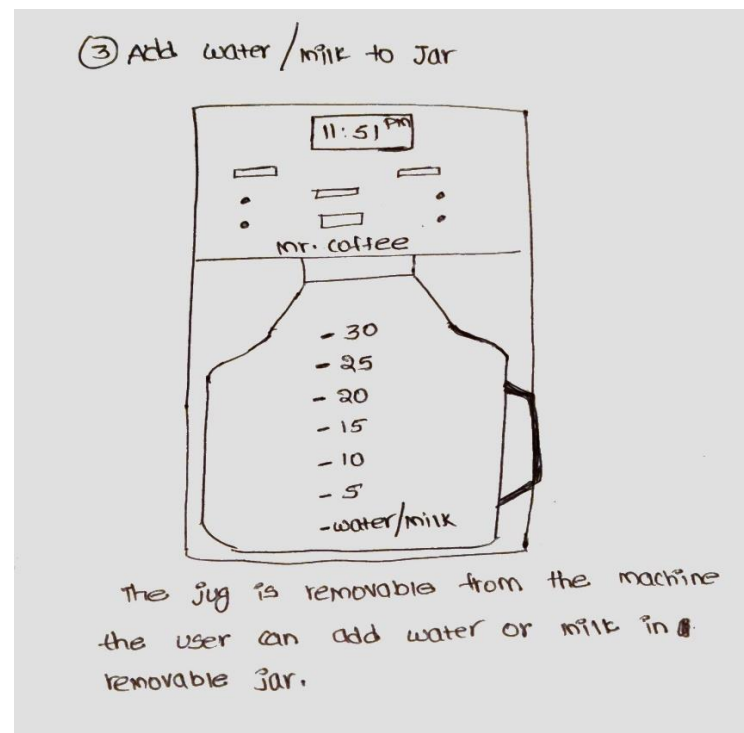 ③ Add water/milk to Jar
11:51 PM
mr. coffee
- 30
- 25
- 20
- 15
- 10
- 5
- water/milk
The jug is removable from the machine
the user can add water or milk in
removable jar.